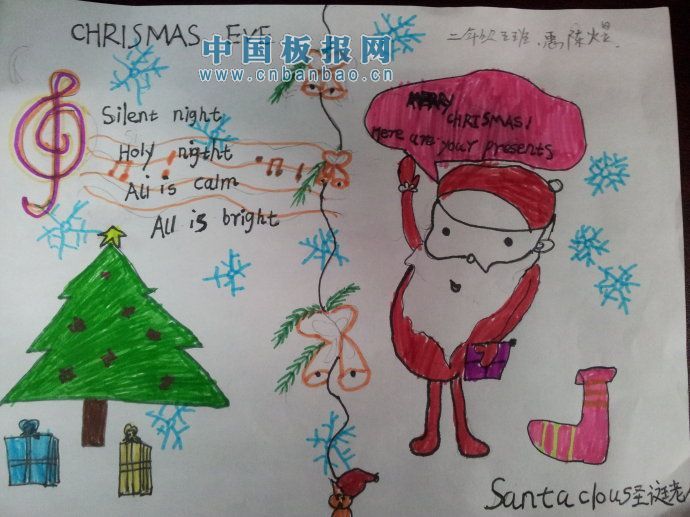 CHRISMAS EVE
中国板报网
www.cnbanbao.cn
二年级五班
Silent night
Holy night
All is calm
All is bright
MERRY
CHRISMAS!
Here are your presents
Santa clous圣诞老人